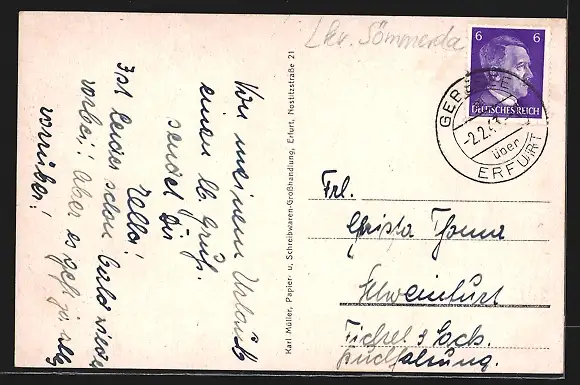 Lkr. Sömmerda
6 6
DEUTSCHES REICH
GEBESEE
-2.2.4
über
ERFURT
Von meinem Urlaub
einen lb. Gruß.
sendet Dir
Zella!
Ist leider schon bald wieder
vorbei! Aber es geht ja alles
vorüber!
Karl Müller, Papier- u. Schreibwaren-Großhandlung, Erfurt, Nostitzstraße 21
Frl.
Christa Thoma
Schweinfurt
Fichtel & Sachs.
Buchhaltung.